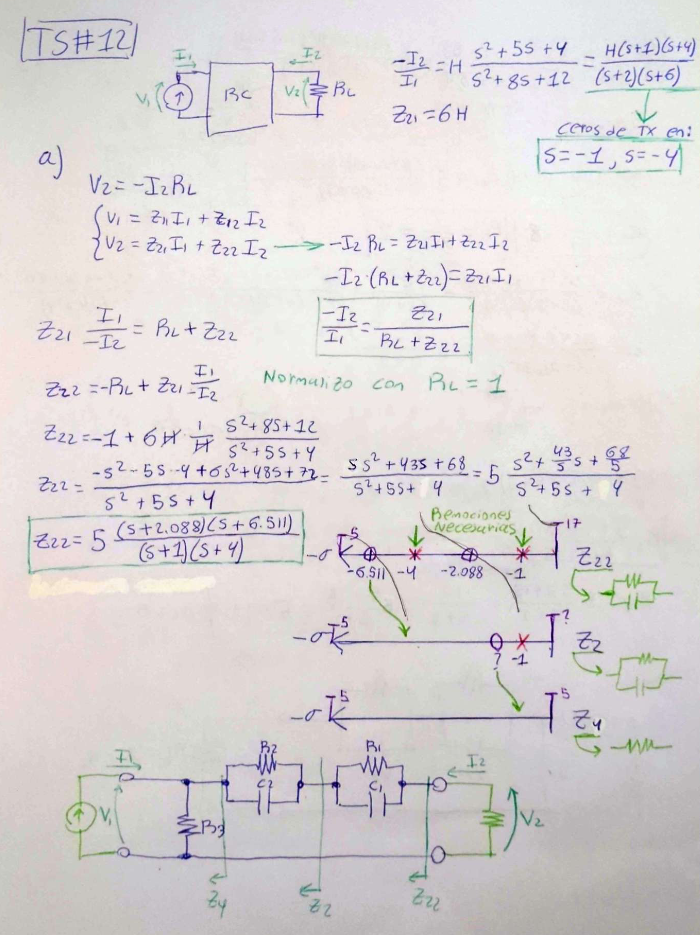 TS#12
I1
I2
V1
RC
V2
RL
-I2/I1 = H (s²+5s+4)/(s²+8s+12) = H(s+1)(s+4)/((s+2)(s+6))
Z21 = 6H
ceros de TX en:
s=-1, s=-4
a)
V2 = -I2 RL
V1 = Z11 I1 + Z12 I2
V2 = Z21 I1 + Z22 I2 → -I2 RL = Z21 I1 + Z22 I2
-I2·(RL+Z22) = Z21 I1
Z21 I1/-I2 = RL + Z22
-I2/I1 = Z21/(RL + Z22)
Z22 = -RL + Z21 I1/-I2
Normalizo con RL = 1
Z22 = -1 + 6H 1/H (s²+8s+12)/(s²+5s+4)
Z22 = (-s²-5s-4+6s²+48s+72)/(s²+5s+4) = (5s²+43s+68)/(s²+5s+4) = 5 (s²+43/5 s+68/5)/(s²+5s+4)
Z22 = 5 (s+2.088)(s+6.511)/((s+1)(s+4))
Remociones
Necesarias
5
17
-σ
-6.511 -4 -2.088 -1
Z22
5
?
-σ
? -1
Z2
5
5
-σ
Z4
I1
R2
R1
I2
C2
C1
V1
R3
V2
Z4
Z2
Z22